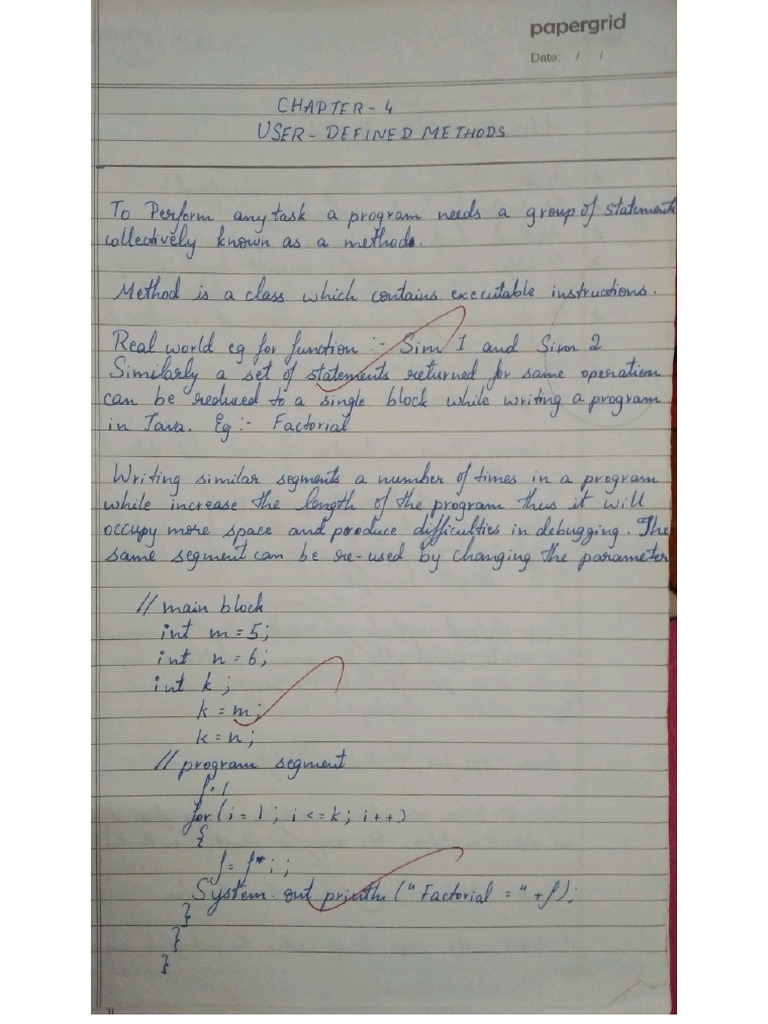 papergrid
Date: / /
CHAPTER - 4
USER - DEFINED METHODS
To Perform any task a program needs a group of statements
collectively known as a method.
Method is a class which contains executable instructions.
Real world eg for function :- Sim 1 and Sim 2
Similarly a set of statements returned for same operation
can be reduced to a single block while writing a program
in Java. Eg :- Factorial
Writing similar segments a number of times in a program
while increase the length of the program thus it will
occupy more space and produce difficulties in debugging. The
same segment can be re-used by changing the parameter
// main block
int m = 5;
int n = 6;
int k ;
k = m;
k = n;
// program segment
f = 1
for (i = 1 ; i <= k ; i ++)
{
f = f * i ;
System. out println (" Factorial = " + f);
}
}
}